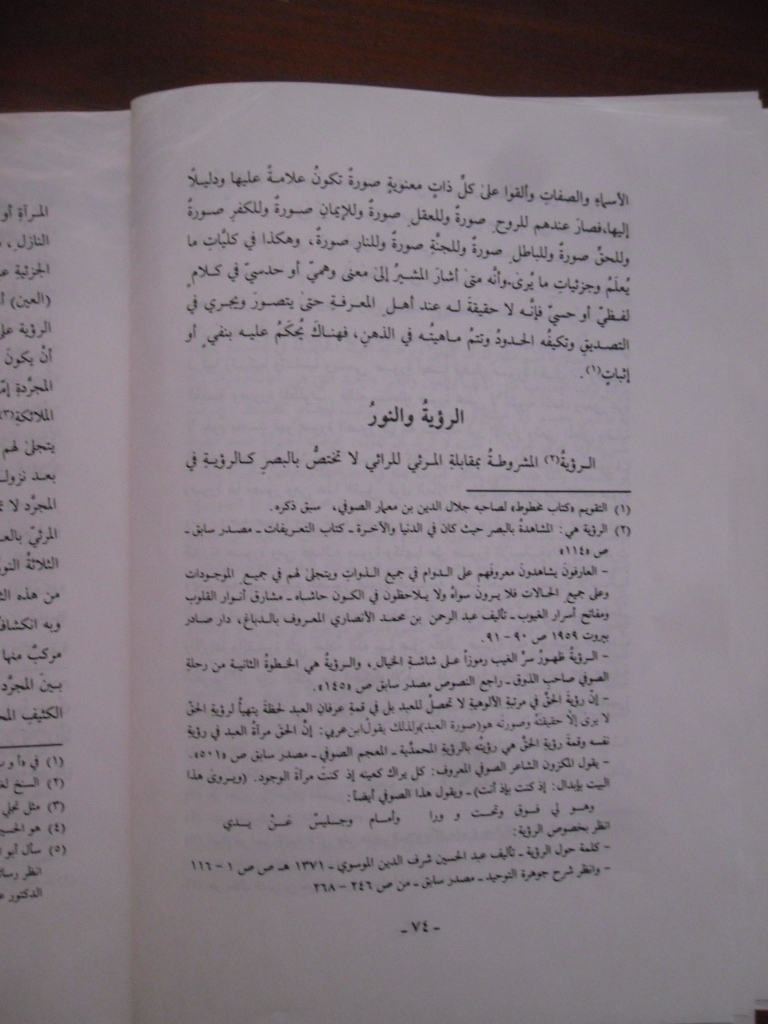 الأسماءِ والصفاتِ وألقوا على كلِّ ذاتٍ معنويةٍ صورةً تكونُ علامةً عليها ودليلًا
إليها،فصارَ عندهم للروحِ صورةٌ وللعقلِ صورةٌ وللإيمانِ صورةٌ وللكفرِ صورةٌ
وللحقُّ صورةٌ وللباطلِ صورةٌ وللجنَّةِ صورةٌ وللنارِ صورةٌ، وهكذا في كليَّاتِ ما
يُعلَمُ وجزئياتِ ما يُرىَ.وأنَّه متىٰ أشارَ المشيرُ إلىٰ معنى وهميّ أو حدسيّ في كلامٍ
لفظيّ أو حسيّ فإنَّه لا حقيقةَ له عند أهلِ المعرفةِ حتىٰ يتصورَ ويجري في
التصديقِ وتكيفُه الحدودُ وتتمُ ماهيتُه في الذهنِ، فهناكَ يُحكَمُ عليه بنفيٍ أو
إثباتٍ(١).
الرؤيةُ والنورُ
الرؤيةُ(٢) المشروطةُ بمقابلةِ المرئي للرائي لا تختصُّ بالبصرِ كالرؤيةِ في
(١) التقويم «كتاب مخطوط» لصاحبه جلال الدين بن معمار الصوفي، سبق ذكره.
(٢) الرؤية هي: المشاهدةُ بالبصر حيث كان في الدنيا والآخرة ـ كتاب التعريفات ـ مصدر سابق ـ
ص «١١٤»
– العارفونَ يشاهدونَ معروفهم على الدوام في جميع الذواتِ ويتجلىٰ لهم في جميع الموجودات
وعلى جميع الحالات فلا يرونَ سواهُ ولا يلاحظون في الكون حاشاه ـ مشارق أنوار القلوب
ومفاتح أسرار الغيوب ـ تأليف عبد الرحمن بن محمد الأنصاري المعروف بالدباغ، دار صادر
بيروت ١٩٥٩ ص ٩٠ – ٩١.
– الرؤيةُ ظهورُ سرِّ الغيب رموزاً على شاشةِ الخيال، والرؤيةُ هي الخطوةُ الثانية من رحلةِ
الصوفي صاحبِ الذوق ـ راجع النصوص مصدر سابق ص «١٤٥».
– إنّ رؤيةَ الحقِّ في مرتبةِ الألوهيةِ لا تحصلُ للعبد بل في قمةِ عرفانِ العبد لحظةَ يتهيأُ لرؤيةِ الحقّ
لا يرى إلّا حقيقتهُ وصورته هو(صورة العبد)ولذلك يقولُ ابن عربي: إنَّ الحقَ مرآةُ العبد في رؤيةِ
نفسه وقمةُ رؤيةِ الحقِّ هي رؤيته بالرؤيةِ المحمديّة ـ المعجم الصوفي ـ مصدر سابق ص «٥٠١».
– يقول المكزون الشاعر الصوفي المعروف: كل يراك كعينه إذ كنتَ مرآة الوجود. (ويروىٰ هذا
البيت بإبدال: إذ كنت بإذ أنت) ـ ويقول هذا الصوفي أيضاً:
وهو لي فوق وتحت و ورا وأمام وجليسٌ عَنْ يدي
انظر بخصوص الرؤية:
– كلمة حول الرؤية ـ تأليف عبد الحسين شرف الدين الموسوي ـ ١٣٧١ هـ ص ص ١ – ١١٦
– وانظر شرح جوهرة التوحيد ـ مصدر سابق ـ من ص ٢٤٦ – ٢٦٨
ـ ٧٤ ـ
المرآةِ أو
النازلِ ،
الجزئيةِ
(العين)
الرؤية على
أنْ يكونَ
المجرَّدةِ إمّا
الملائكةِ(٣)
يتجلىٰ لهم
بعد نزولِ
المجرّد لا
المرئيّ
الثلاثةُ النورُ
من هذه
وبه
مركبٌ منها
بينَ المجرَّد
الكثيفِ
(١) في
(٢)
(٣) مثل تجلي
(٤) هو الحسين
(٥) سأل أبو
انظر
الدكتور